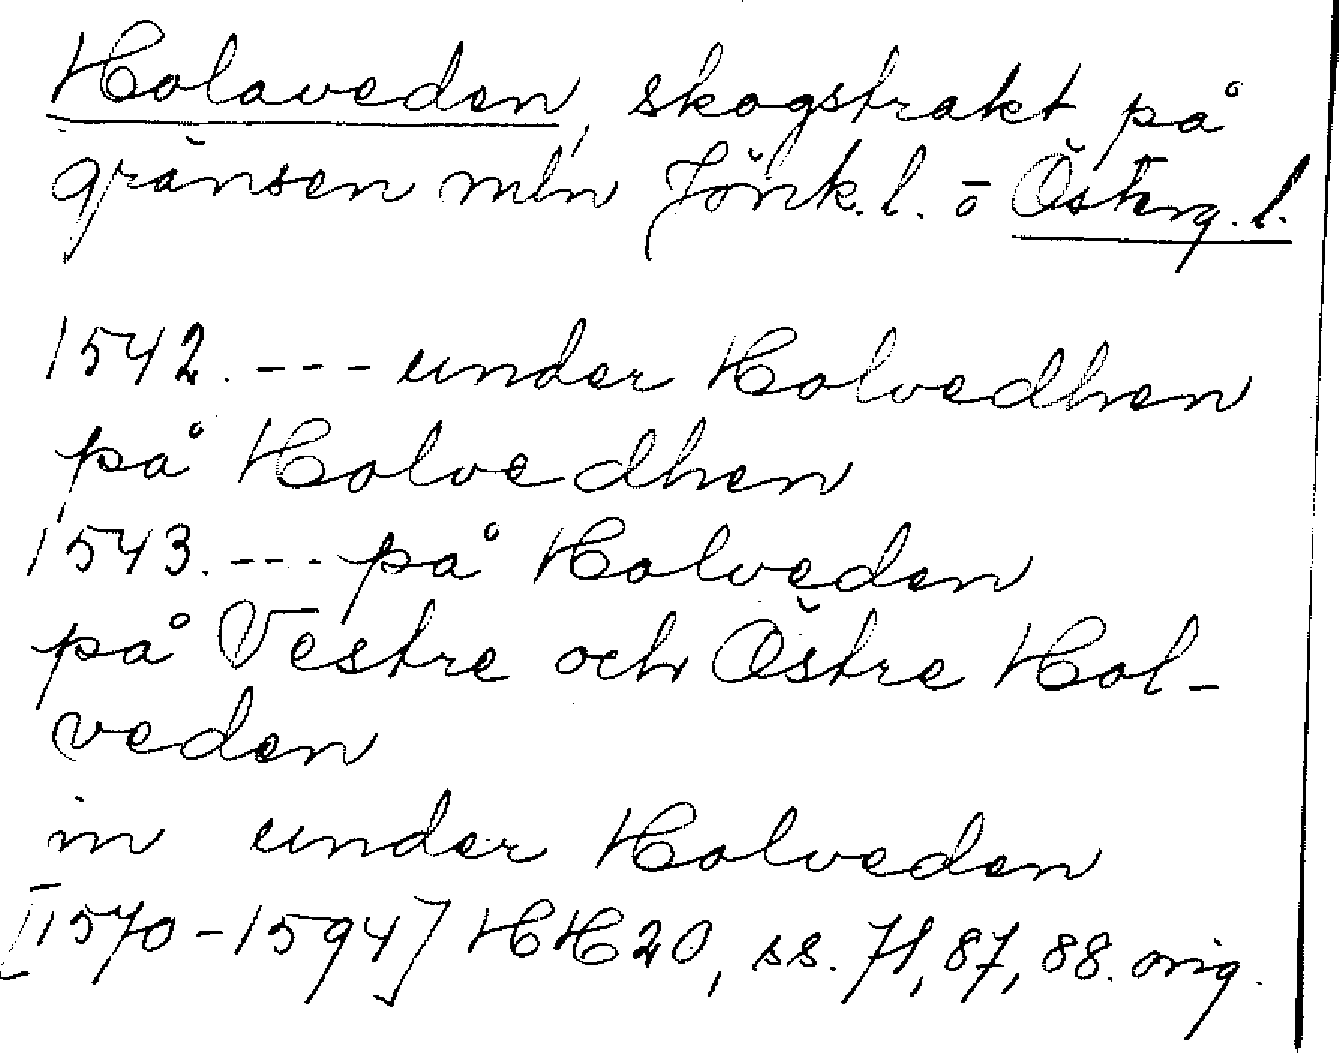 Holaveden, skogstrakt på
gränsen mln Jönk.l. ō Östrg.l.
1542. --- under Holvedhen
på Holvedhen
1543. --- på Holveden
på Vestre och Östre Hol-
veden
in under Holveden
[1570-1594] HH20, ss. 71, 87, 88. orig.